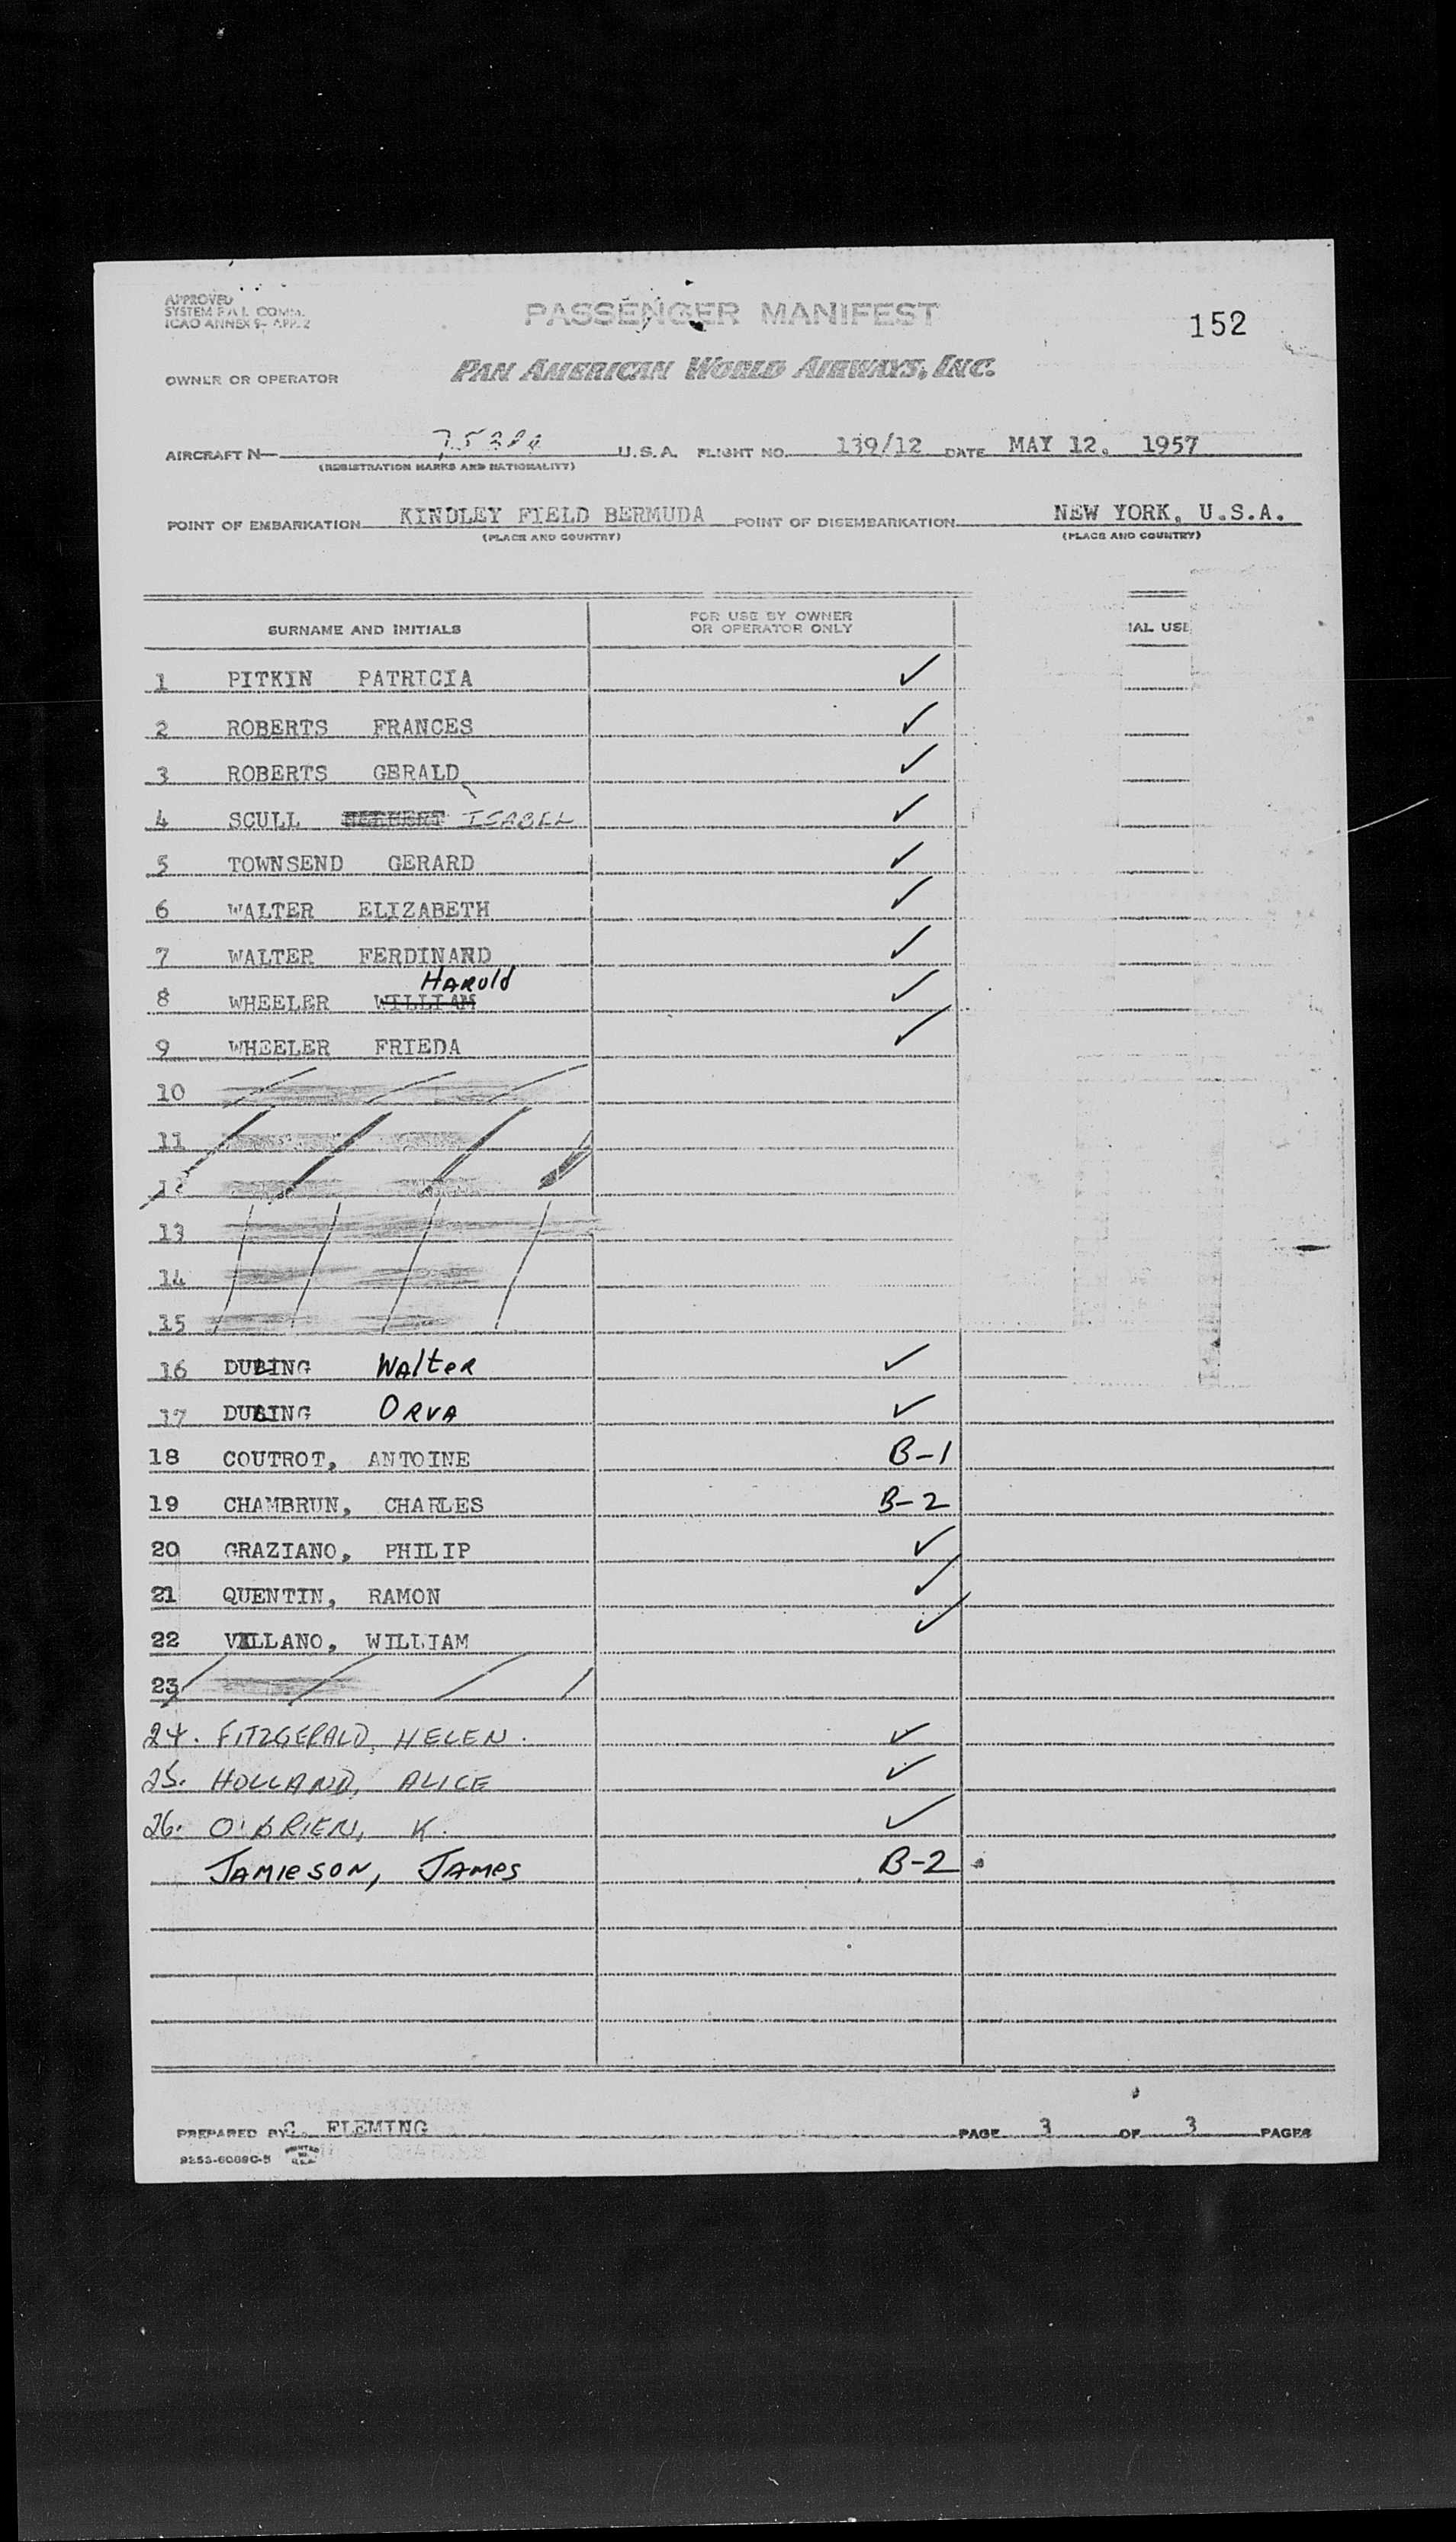 APPROVED
SYSTEM F.A.L. COMM.
ICAO ANNEX 9- APP. 2
PASSENGER MANIFEST
152
OWNER OR OPERATOR PAN AMERICAN WORLD AIRWAYS, INC.
AIRCRAFT N— U.S.A. FLIGHT NO. 139/12 DATE MAY 12. 1957
(REGISTRATION MARKS AND NATIONALITY)
POINT OF EMBARKATION KINDLEY FIELD BERMUDA POINT OF DISEMBARKATION NEW YORK, U.S.A.
(PLACE AND COUNTRY) (PLACE AND COUNTRY)
SURNAME AND INITIALS FOR USE BY OWNER OR OPERATOR ONLY IAL USE
1 PITKIN PATRICIA ✓
2 ROBERTS FRANCES ✓
3 ROBERTS GERALD ✓
4 SCULL ISABEL ✓
5 TOWNSEND GERARD ✓
6 WALTER ELIZABETH ✓
7 WALTER FERDINAND ✓
8 WHEELER WILLIAM Harold ✓
9 WHEELER FRIEDA ✓
10
11
12
13
14
15
16 Walter ✓
17 ORVA ✓
18 COUTROT, ANTOINE B-1
19 CHAMBRUN, CHARLES B-2
20 GRAZIANO, PHILIP ✓
21 QUENTIN, RAMON ✓
22 VILLANO, WILLIAM ✓
23
24. FITZGERALD, HELEN. ✓
25. HOLLAND, ALICE ✓
26. O'BRIEN, K. ✓
JAMIESON, JAMES B-2
PREPARED BY C. FLEMING PAGE 3 OF 3 PAGES
PRINTED IN U.S.A.